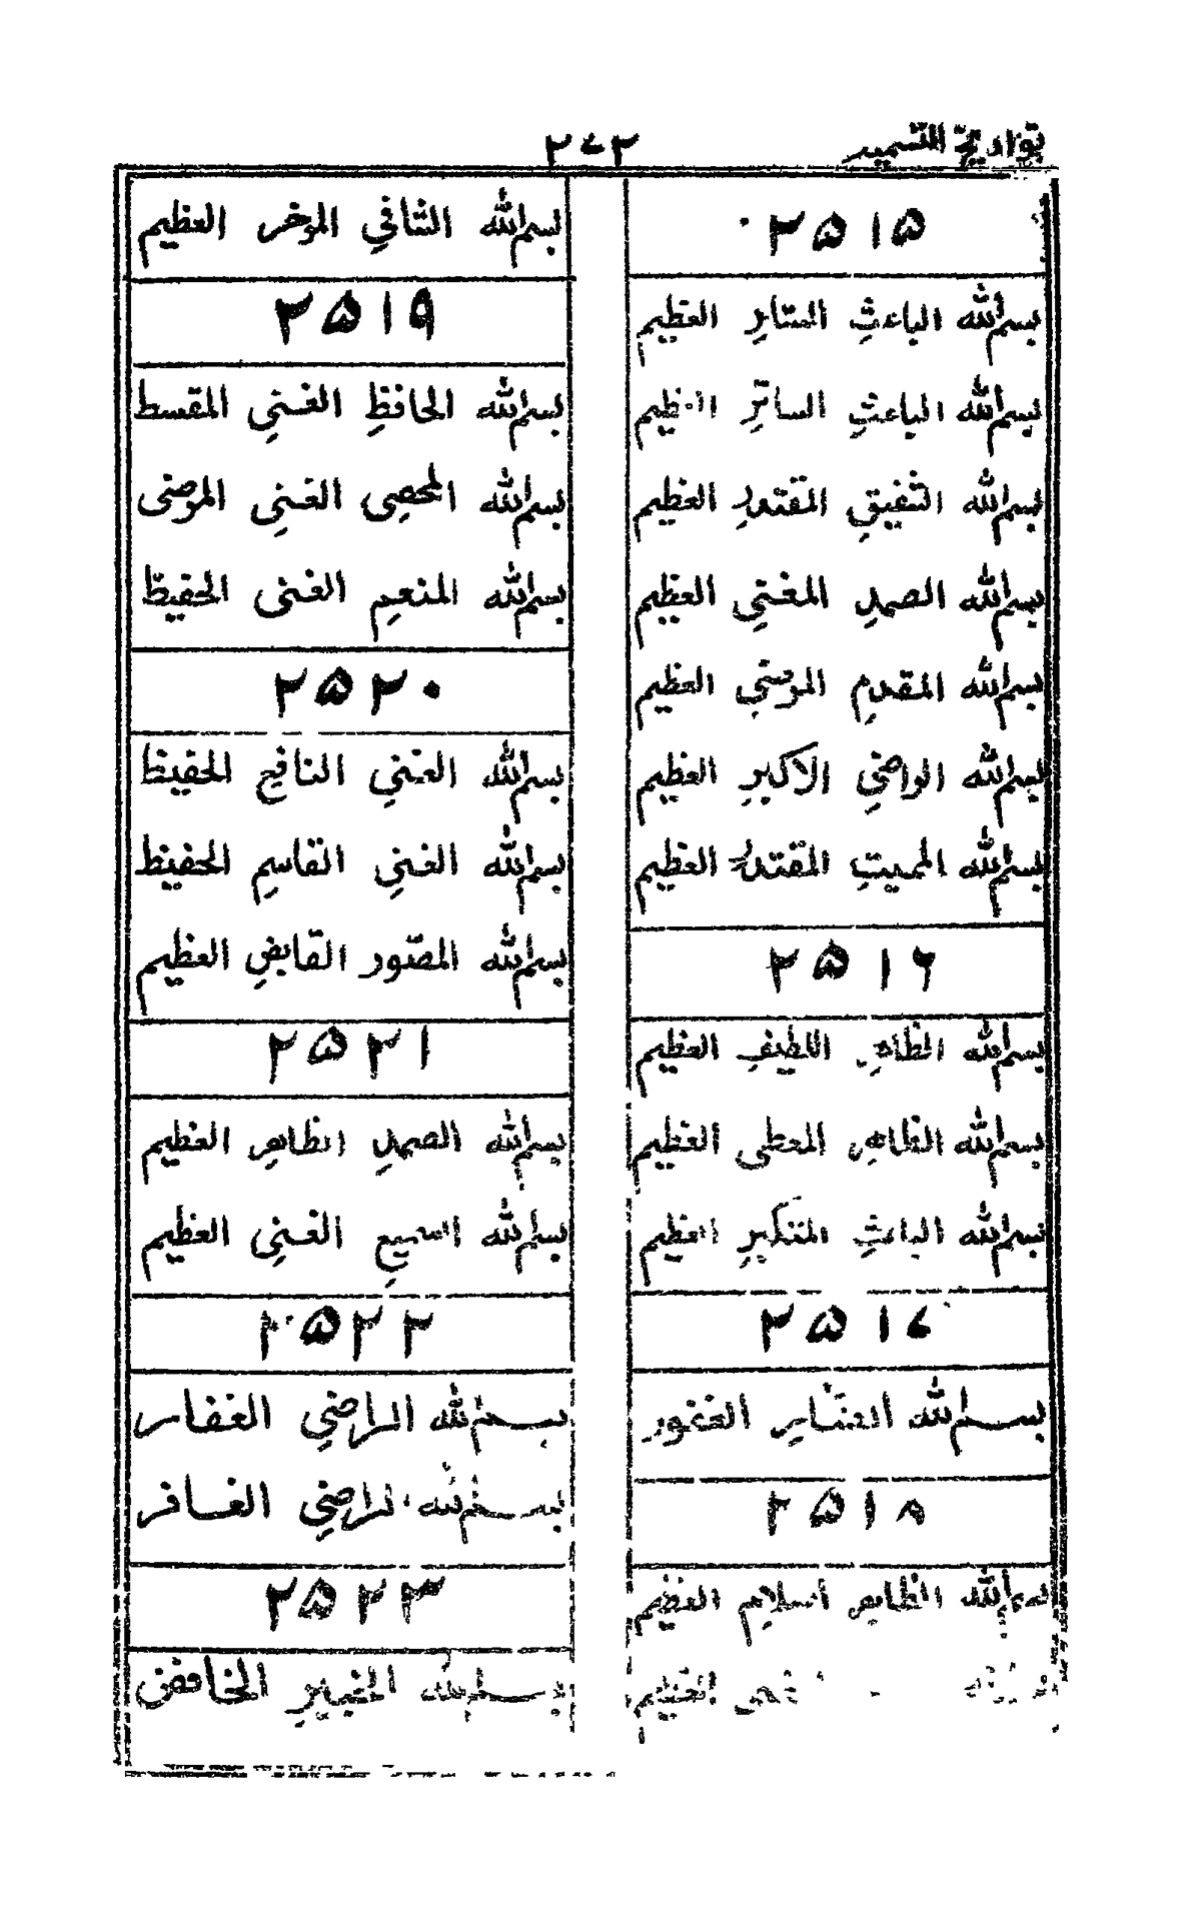 تواريخ التسمية
٢٧٢
٢٥١٥
بسم الله الباعثِ الستارِ العظيم
بسم الله الباعثِ الساترِ العظيم
بسم الله المقتدرِ العظيم
بسم الله الصمدِ المغني العظيم
بسم الله المقدمِ العظيم
بسم الله الراضي الاكبرِ العظيم
بسم الله المميتِ المقتدر العظيم
٢٥١٦
بسم الله الظاهرِ اللطيفِ العظيم
بسم الله الظاهرِ المعطى العظيم
بسم الله الباعثِ المتكبرِ العظيم
٢٥١٧
بسم الله الغفارِ الغفور
٢٥١٨
بسم الله الظاهر السلامِ العظيم
العظيم
بسم الله الشافي الموخر العظيم
٢٥١٩
بسم الله الحافظِ الغني المقسط
بسم الله المحصى الغني
بسم الله المنعم الغنى الحفيظ
٢٥٢٠
بسم الله الغني النافع الحفيظ
بسم الله الغني القاسمِ الحفيظ
بسم الله المصّور القابضِ العظيم
٢٥٢١
بسم الله الصمدِ الظاهر العظيم
بسم الله السميعِ الغني العظيم
٢٥٢٢
بسم الله الراضي الغفار
بسم الله الراضي الغافر
٢٥٢٣
بسم الله الخبيرِ الخافض